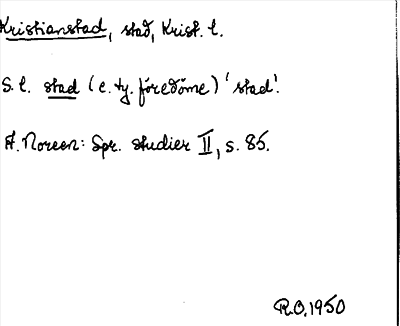 Kristianstad, stad, Krist. l.
S. l. stad (e. ty. föredöme) 'stad'.
A. Noreen: Spr. studier II, s. 85.
R.O. 1950